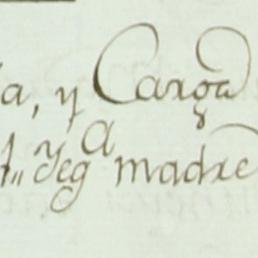 a, y Carga
y Seg.a madre